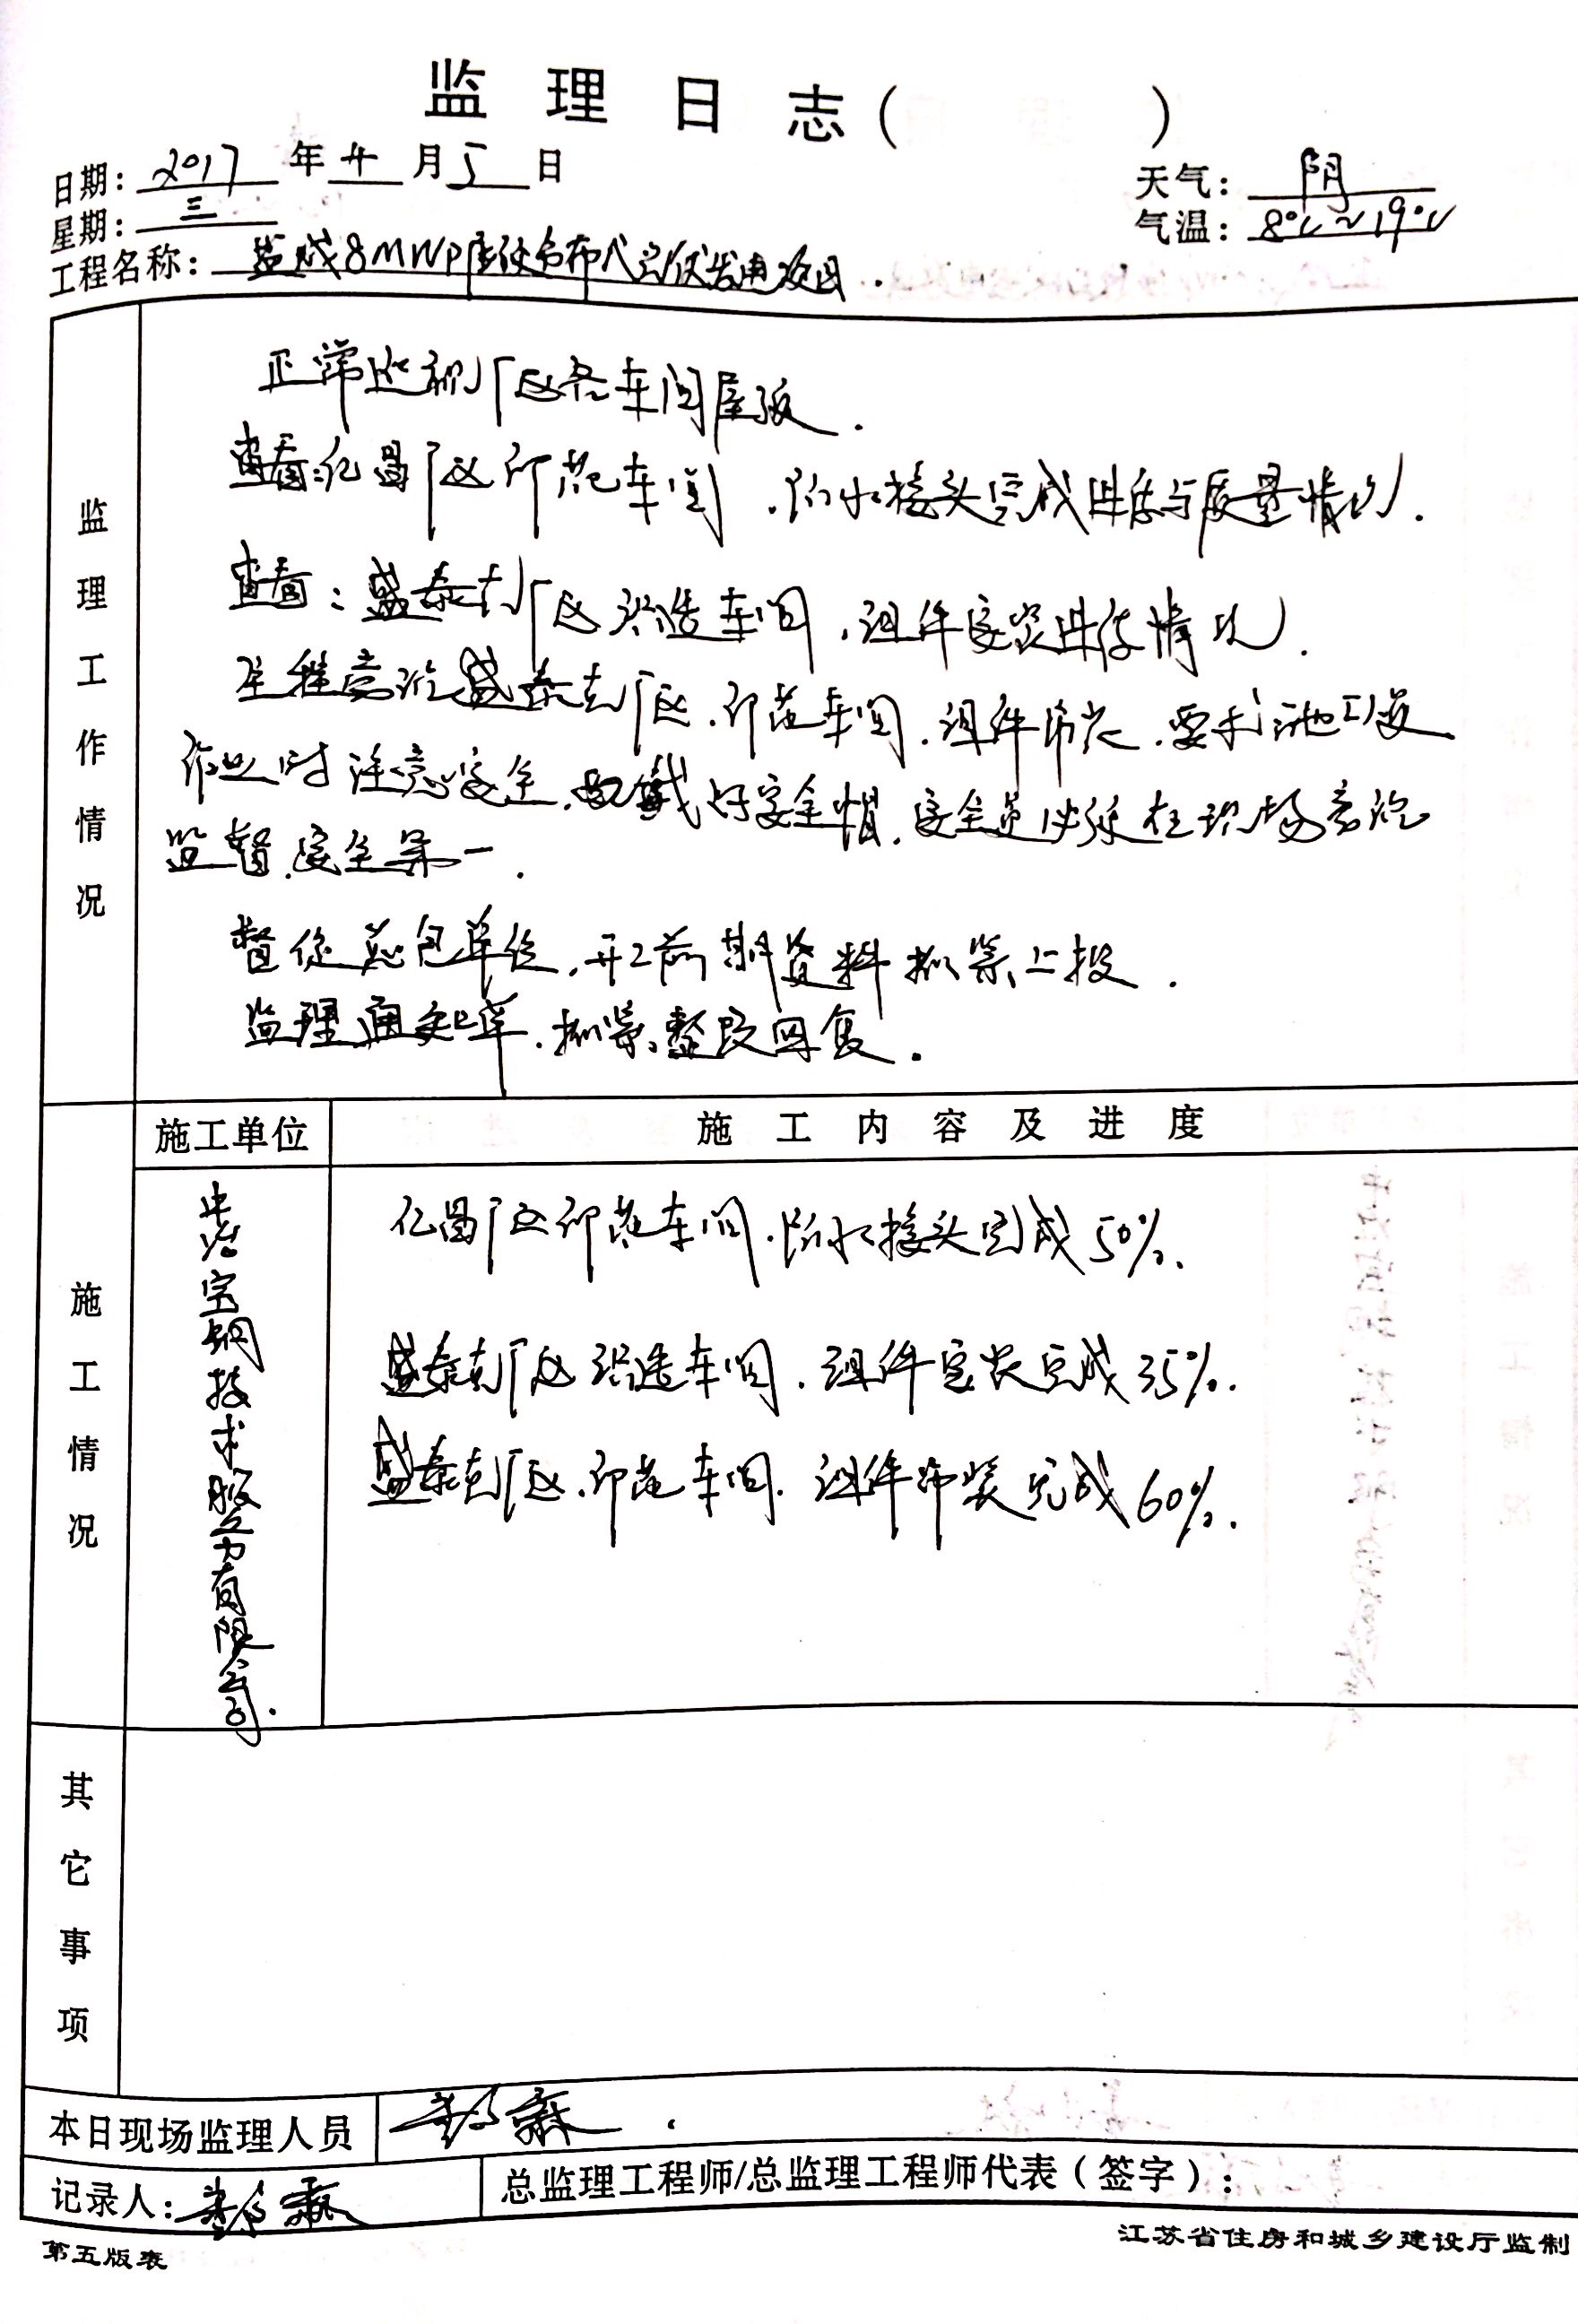 监理日志( )
日期：2017年4月5日
天气：阴
星期：三
气温：8℃~19℃
工程名称：盐城8MWP屋顶分布式光伏发电项目.
监理工作情况
正常巡视厂区各车间屋顶.
查看:亿昌厂区印花车间.防水接头完成进度与质量情况.
查看：盛泰克厂区织造车间.组件安装进度情况.
旁站盛泰克厂区.印花车间.组件吊装.要求施工人员
作业时注意安全.戴好安全帽.安全员必须在现场旁站
监督.安全第一.
督促总包单位.开工前期资料抓紧上报.
监理通知单.抓紧整改回复.
施工单位
施工内容及进度
施工情况
中冶宝钢技术服务有限公司.
亿昌厂区印花车间.防水接头完成50%.
盛泰克厂区织造车间.组件安装完成35%.
盛泰克厂区.印花车间.组件吊装完成60%.
其它事项
本日现场监理人员
记录人：
总监理工程师/总监理工程师代表（签字）：
第五版表
江苏省住房和城乡建设厅监制